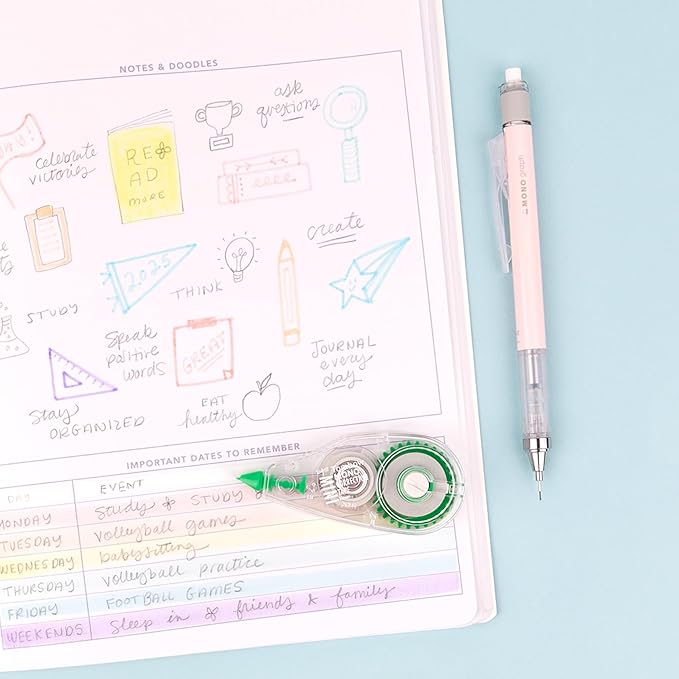 NOTES & DOODLES
ask
questions
celebrate
victories
READ
MORE
create
2025
THINK
STUDY
Speak
positive
words
GREAT
JOURNAL
every
day
EAT
healthy
Stay
ORGANIZED
MONO graph
IMPORTANT DATES TO REMEMBER
DAY EVENT
MONDAY Study & STUDY
TUESDAY volleyball games
WEDNESDAY babysitting
THURSDAY volleyball practice
FRIDAY FOOTBALL GAMES
WEEKENDS Sleep in & friends & family
MONO